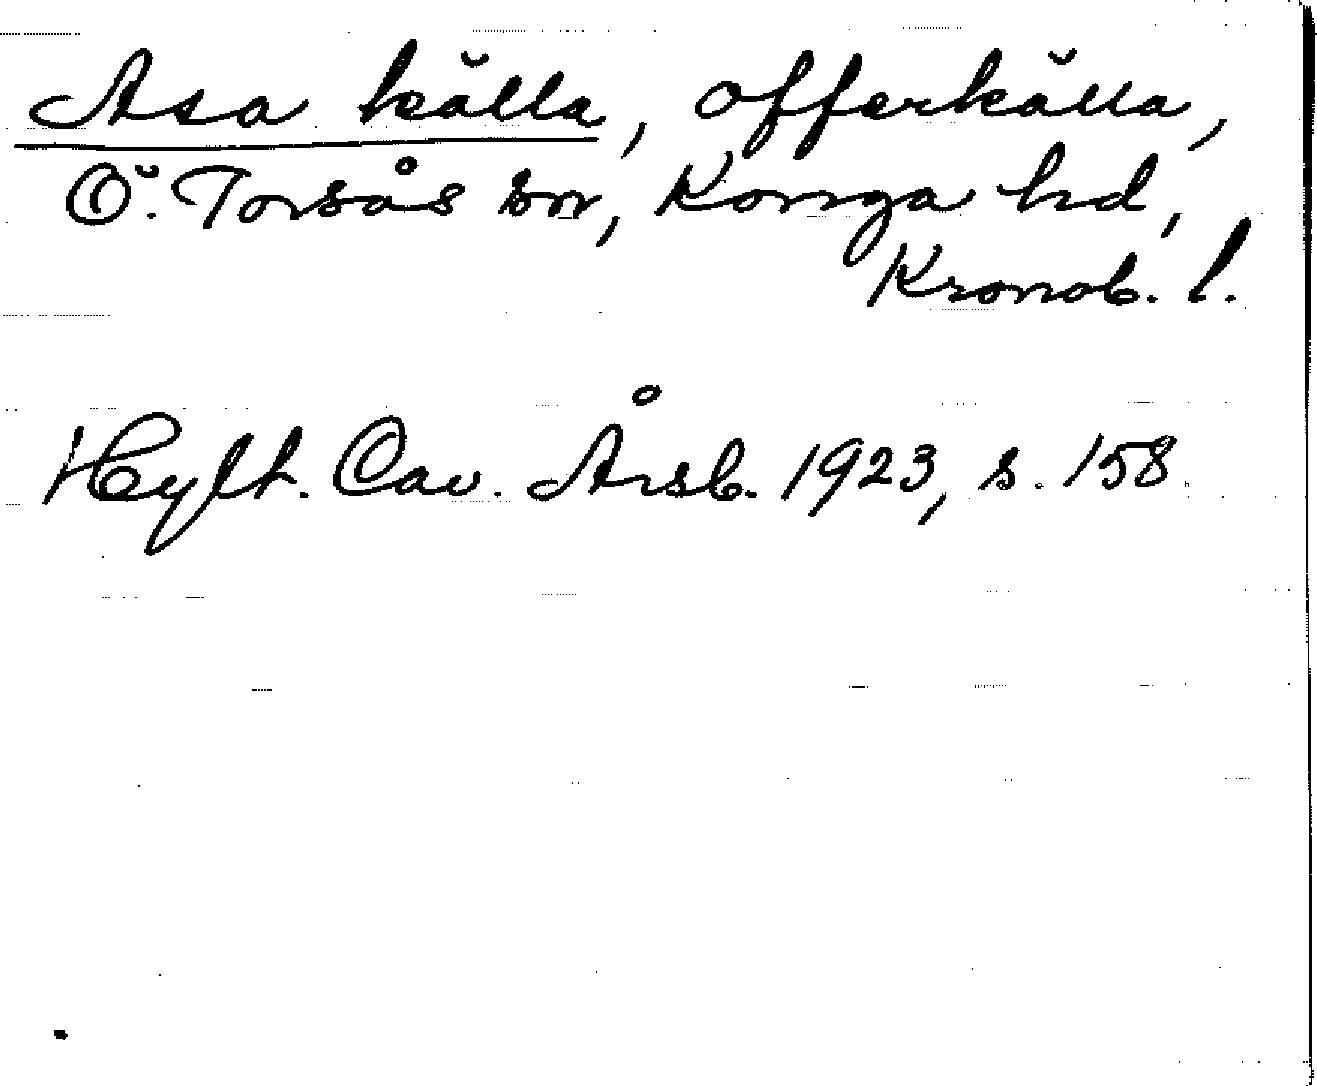 Asa källa, offerkälla,
Ö. Torsås sn, Konga hd,
Kronob. l.
Hylt. Cav. Årsb. 1923, s. 158